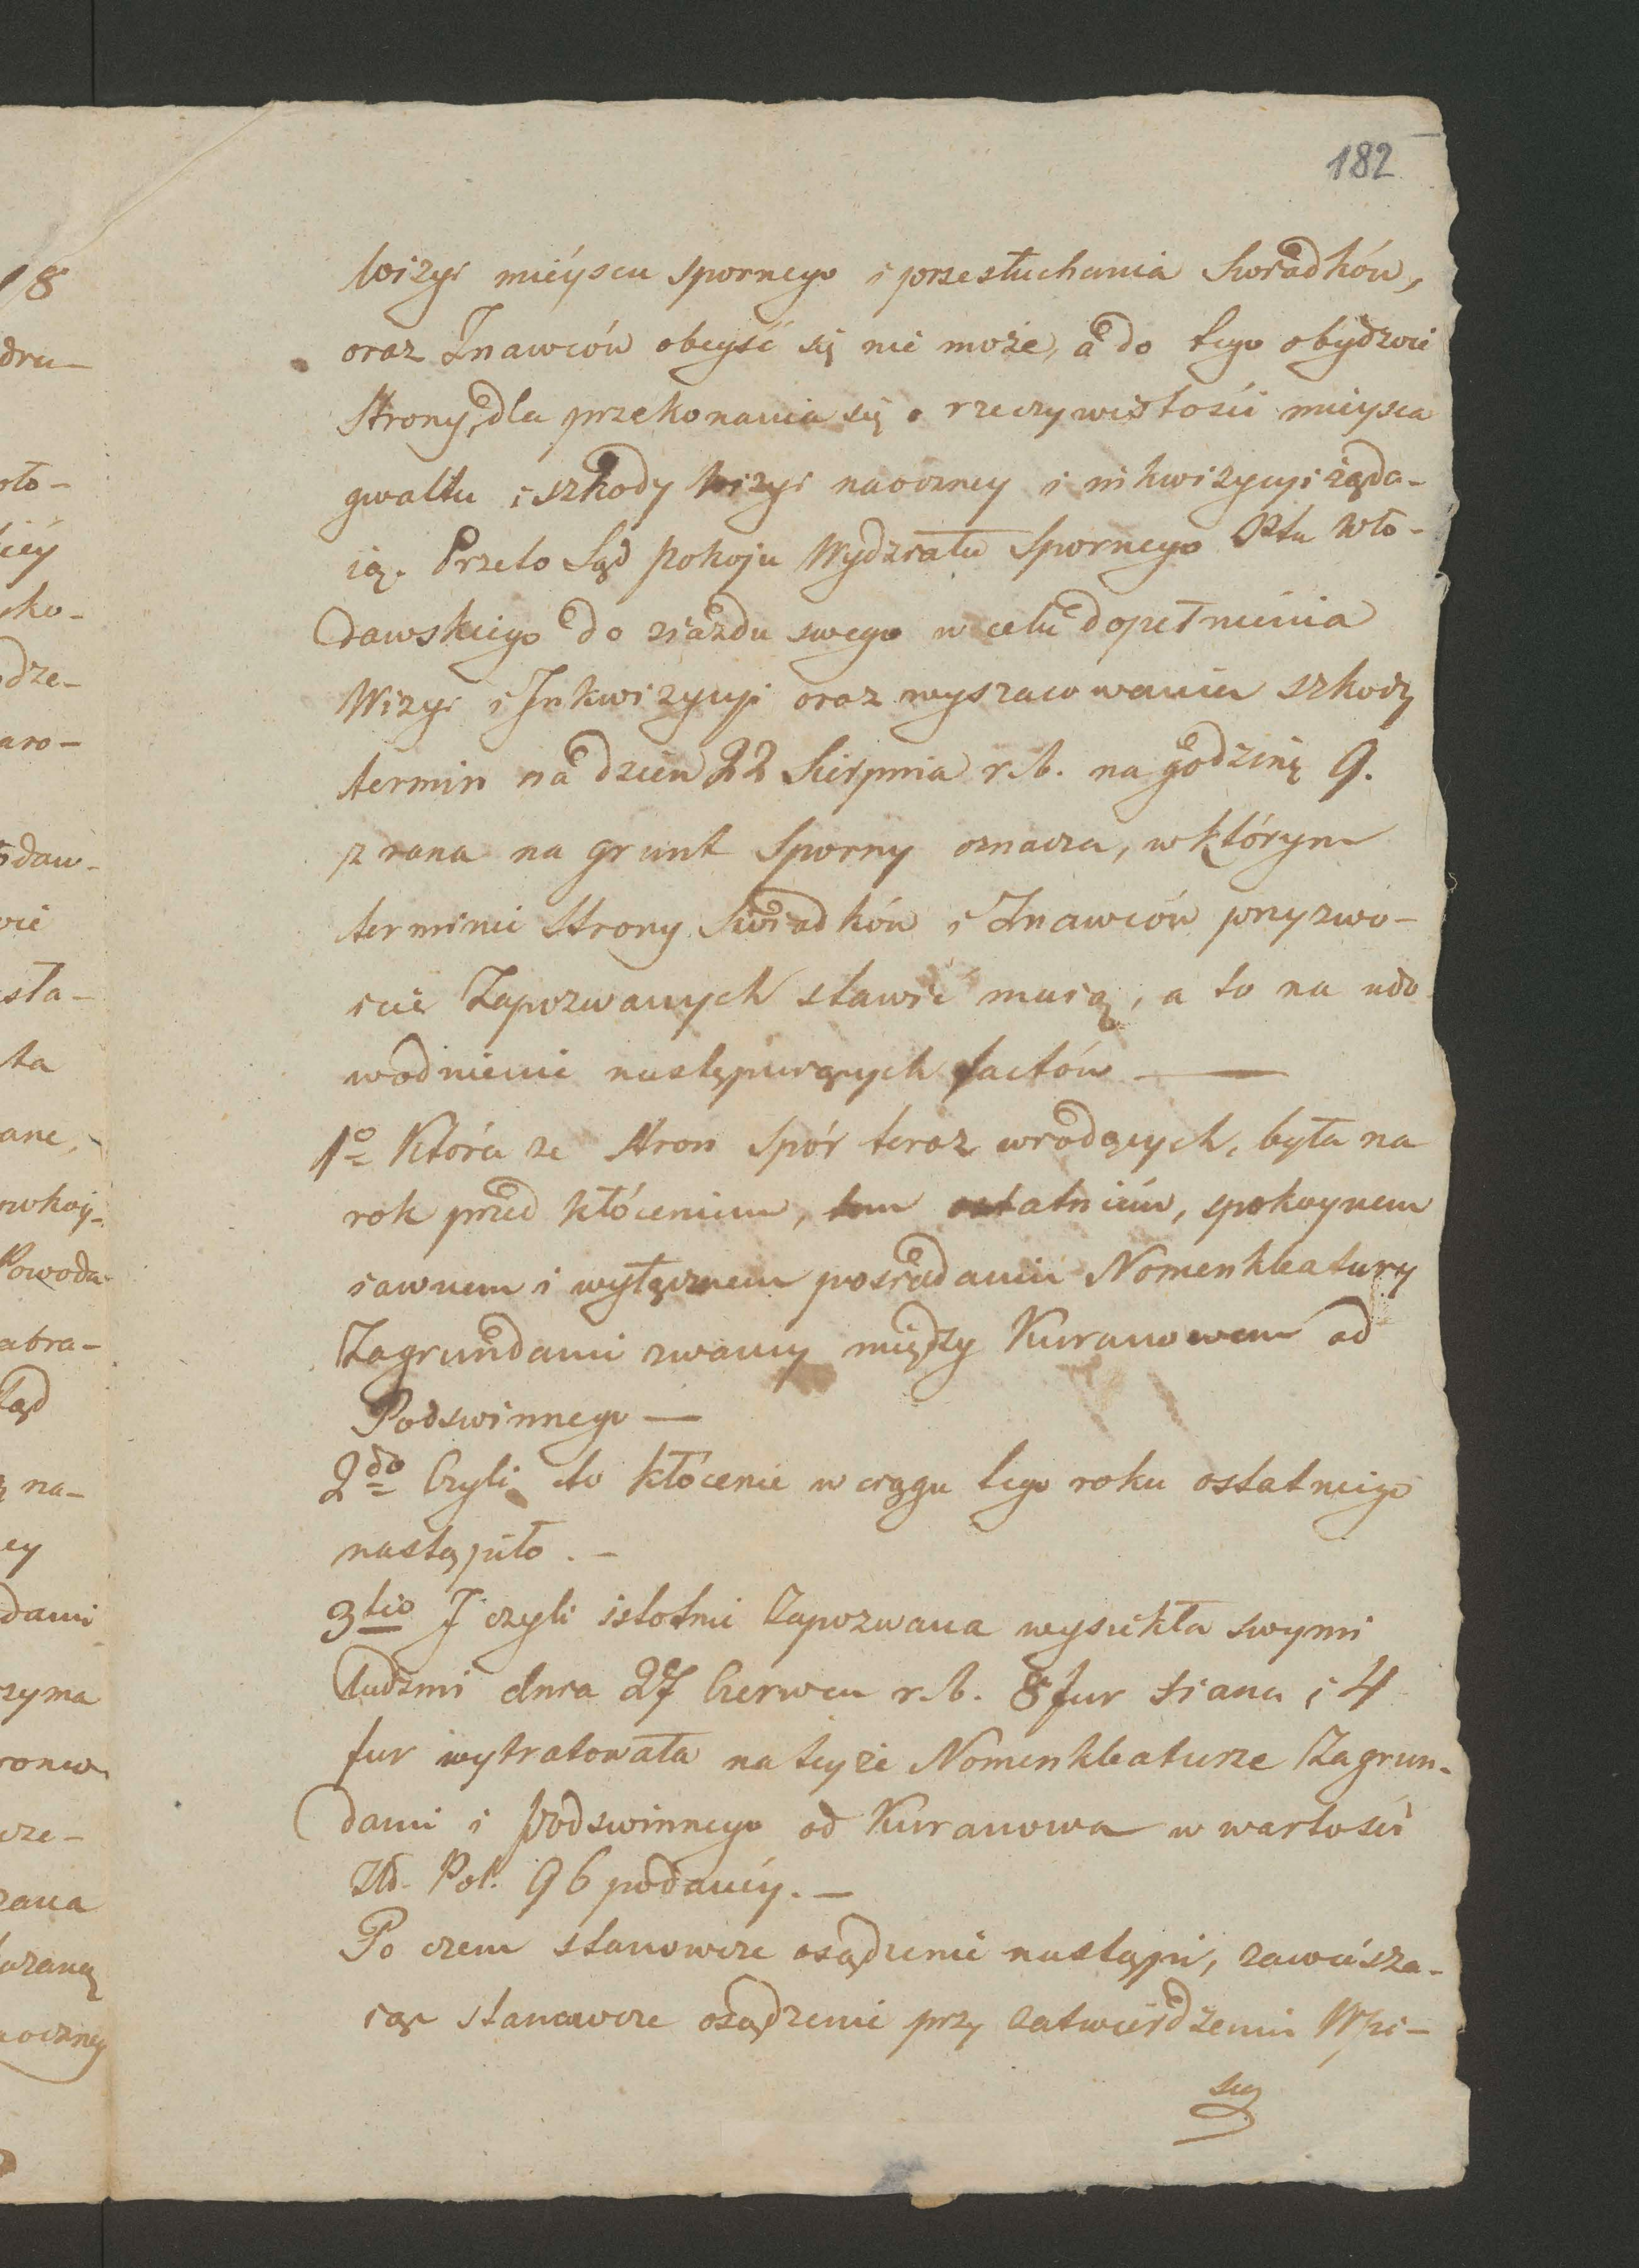 182
Wizyi mieysca spornego i przesłuchania Swiadków,
oraz Znawców obeyść się nie może, a do tego obydwie
Strony, dla przekonania się o rzeczywistości mieysca
gwałtu i szkody Wizyi naoczney i inkwizycyi żąda-
ią. Przeto Sąd Pokoju Wydziału Spornego Pttu Wło-
dawskiego do ziazdu swego w celu dopełnienia
Wizyi i Inkwizycyi oraz wyszacowania szkody
termin na dzien 22 Sierpnia r. b. na godzinę 9.
z rana na grunt Sporny oznacza, w którym
terminie Strony Swiadków i Znawców przyzwo-
icie Zapozwanych stawić muszą, a to na udo
wodnienie następuiących factów —
1o Która ze Stron Spór teraz wiodących, była na
rok przed kłóceniem, tem ostatniem, spokoynem
iawnem i wyłącznem posiadaniu Nomenkleatury
Zagrundami zwaney między Kuranowem od
Podswinnego —
2do Czyli to kłócenie w ciągu tego roku ostatniego
nastąpiło. —
3tio I czyli istotnie Zapozwana wysiekła swymi
ludzmi dnia 27 Czerwca r. b. 8 fur siana i 4
fur wytratowała na teyże Nomenkleaturze Zagrun-
dami i Podswinnego od Kuranowa w wartości
Złł. Pol. 96 podaney. —
Po czem stanowcze osądzenie nastąpi, zawiesza-
iąc stanowcze osądzenie przy zatwierdzeniu Wpi-
su
18
dru-
oło-
iéy
sko-
dze-
aro-
odaw-
wie
sła-
ta
ane,
Powoda
abra-
Sąd
na-
ey
dami
zyma
cze-
zana
oczney